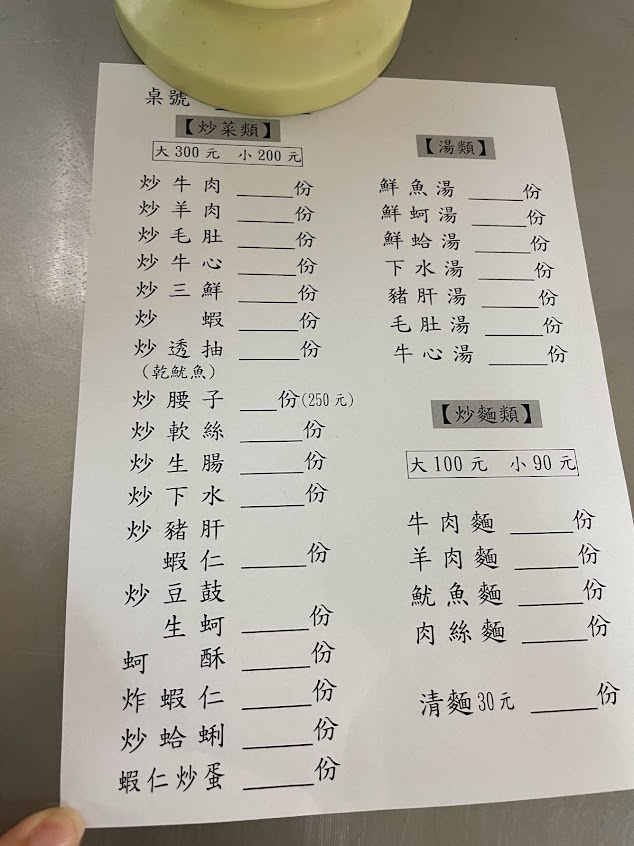 桌號
【炒菜類】
大300元 小200元
炒牛肉 ______份
炒羊肉 ______份
炒毛肚 ______份
炒牛心 ______份
炒三鮮 ______份
炒 蝦 ______份
炒透抽 ______份
(乾魷魚)
炒腰子 ____份(250元)
炒軟絲 ______份
炒生腸 ______份
炒下水 ______份
炒豬肝
蝦仁 ______份
炒豆鼓
生蚵 ______份
蚵 酥 ______份
炸蝦仁 ______份
炒蛤蜊 ______份
蝦仁炒蛋 ______份
【湯類】
鮮魚湯 ______份
鮮蚵湯 ______份
鮮蛤湯 ______份
下水湯 ______份
豬肝湯 ______份
毛肚湯 ______份
牛心湯 ______份
【炒麵類】
大100元 小90元
牛肉麵 ______份
羊肉麵 ______份
魷魚麵 ______份
肉絲麵 ______份
清麵30元 ______份